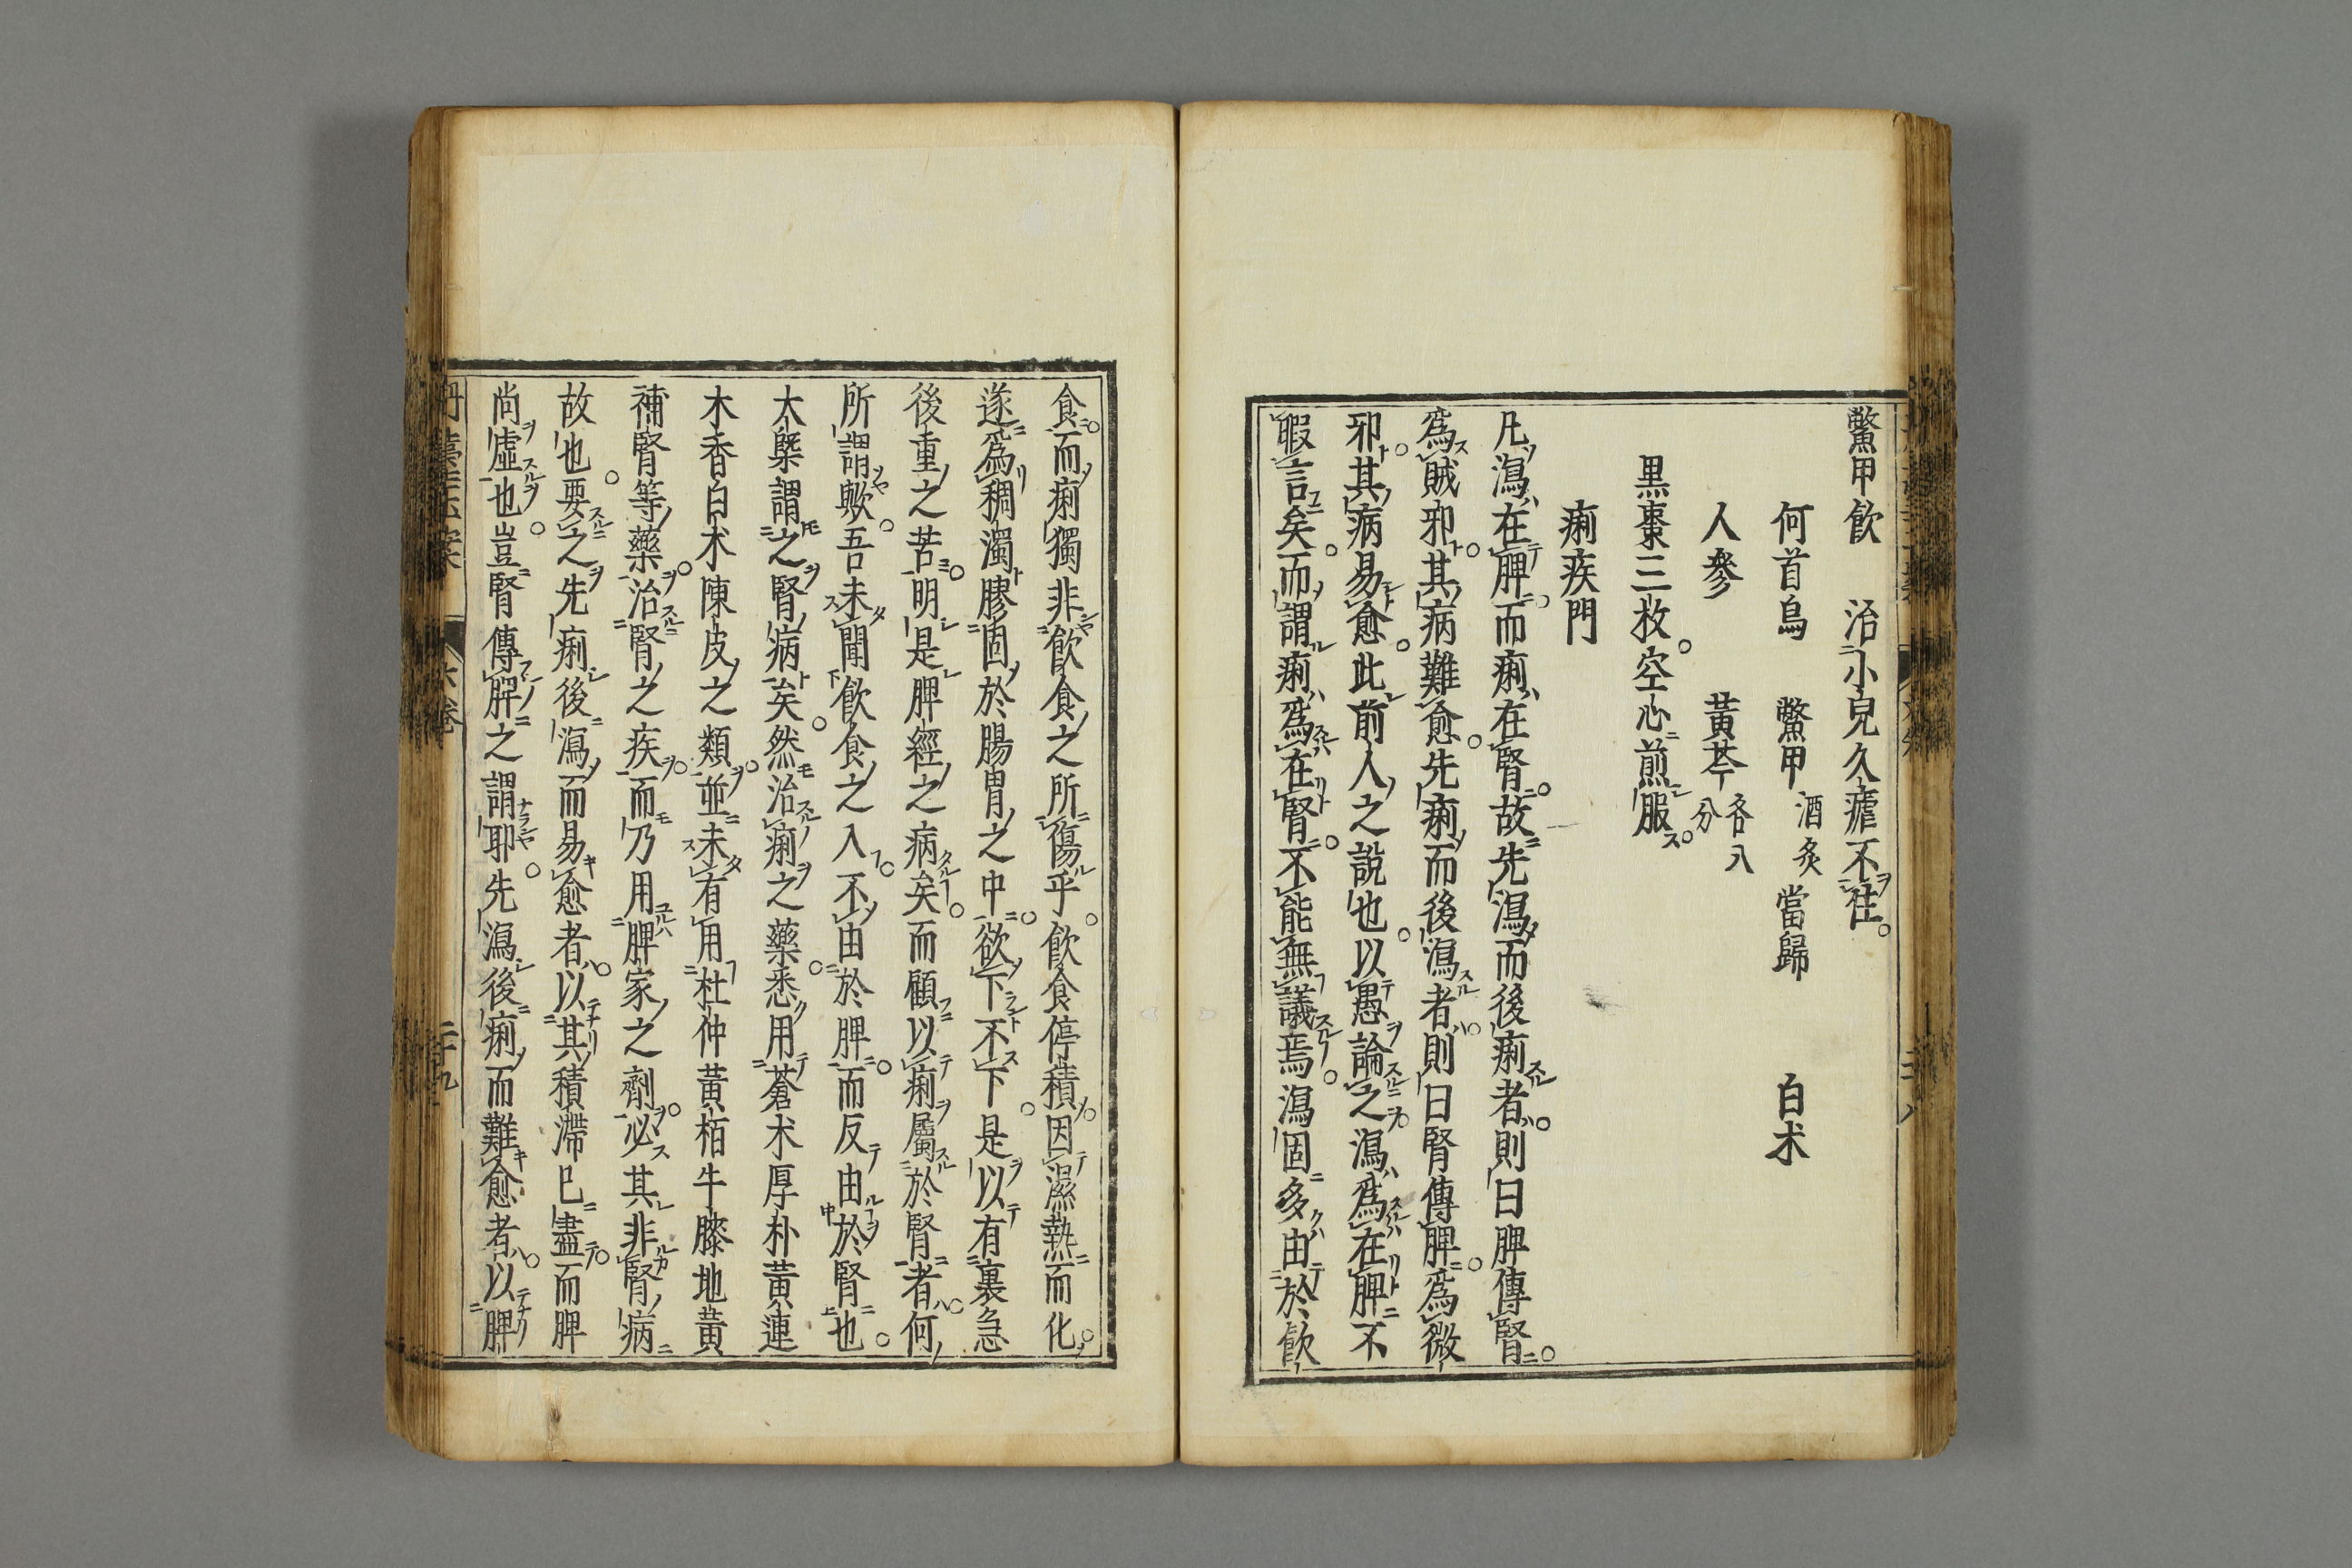 鱉甲飲　治小兒久瘧不住。
何首烏　鱉甲酒炙　當歸　白朮
人參　黃芩各八分
黑棗三枚。空心煎服。
痢疾門
凡瀉在脾。而痢在腎。故先瀉而後痢者。則曰脾傳腎。
爲賊邪。其病難愈。先痢而後瀉者。則曰腎傳脾。爲微
邪。其病易愈。此前人之說也。以愚論之。瀉爲在脾不
暇言矣。而謂痢爲在腎。不能無議焉。瀉固多由於飲
食。而痢獨非飲食之所傷乎。飲食停積。因濕熱而化。
遂爲稠濁膠固於腸胃之中。欲下不下。是以有裏急
後重之苦。明是脾經之病矣。而顧以痢屬於腎者。何
所謂歟。吾未聞飲食之入。不由於脾。而反由於腎也。
太槩謂之腎病矣。然治痢之藥。悉用蒼朮厚朴黃連
木香白朮陳皮之類。並未有用杜仲黃栢牛膝地黃
補腎等藥。治腎之疾。而乃用脾家之劑。必其非腎病
故也。要之先痢後瀉而易愈者。以其積滯已盡。而脾
尚虛也。豈腎傳脾之謂耶。先瀉後痢而難愈者。以脾
丹臺玉案　六卷　二十九